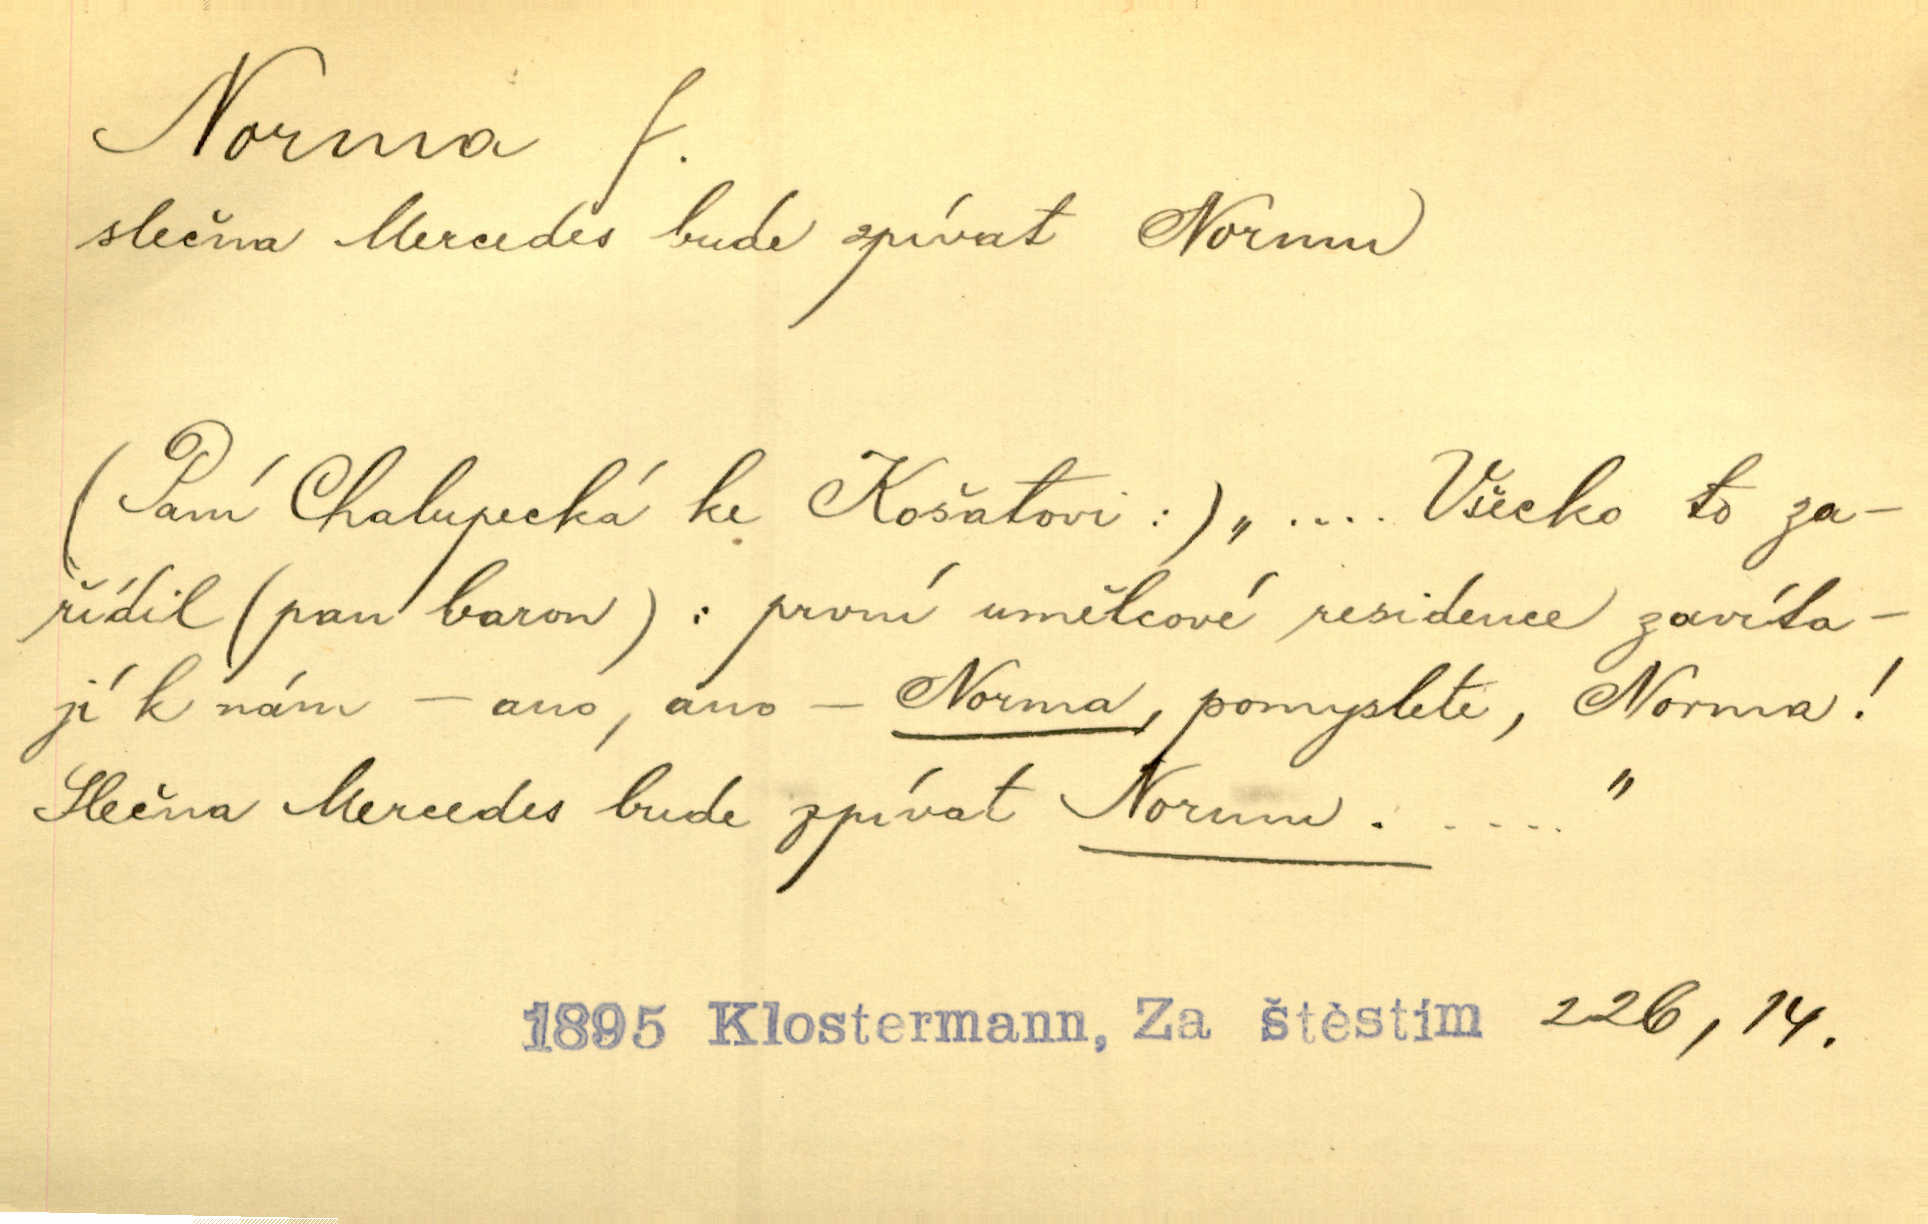 Norma f.
slečna Mercedes bude zpívat Normu
(Paní Chalupecká ke Košatovi:) „.... Všecko to za-
řídil (pan baron): první umělcové residence zavíta-
jí k nám – ano, ano – Norma, pomyslete, Norma!
Slečna Mercedes bude zpívat Normu. ....."
1895 Klostermann, Za štěstím 226, 14.